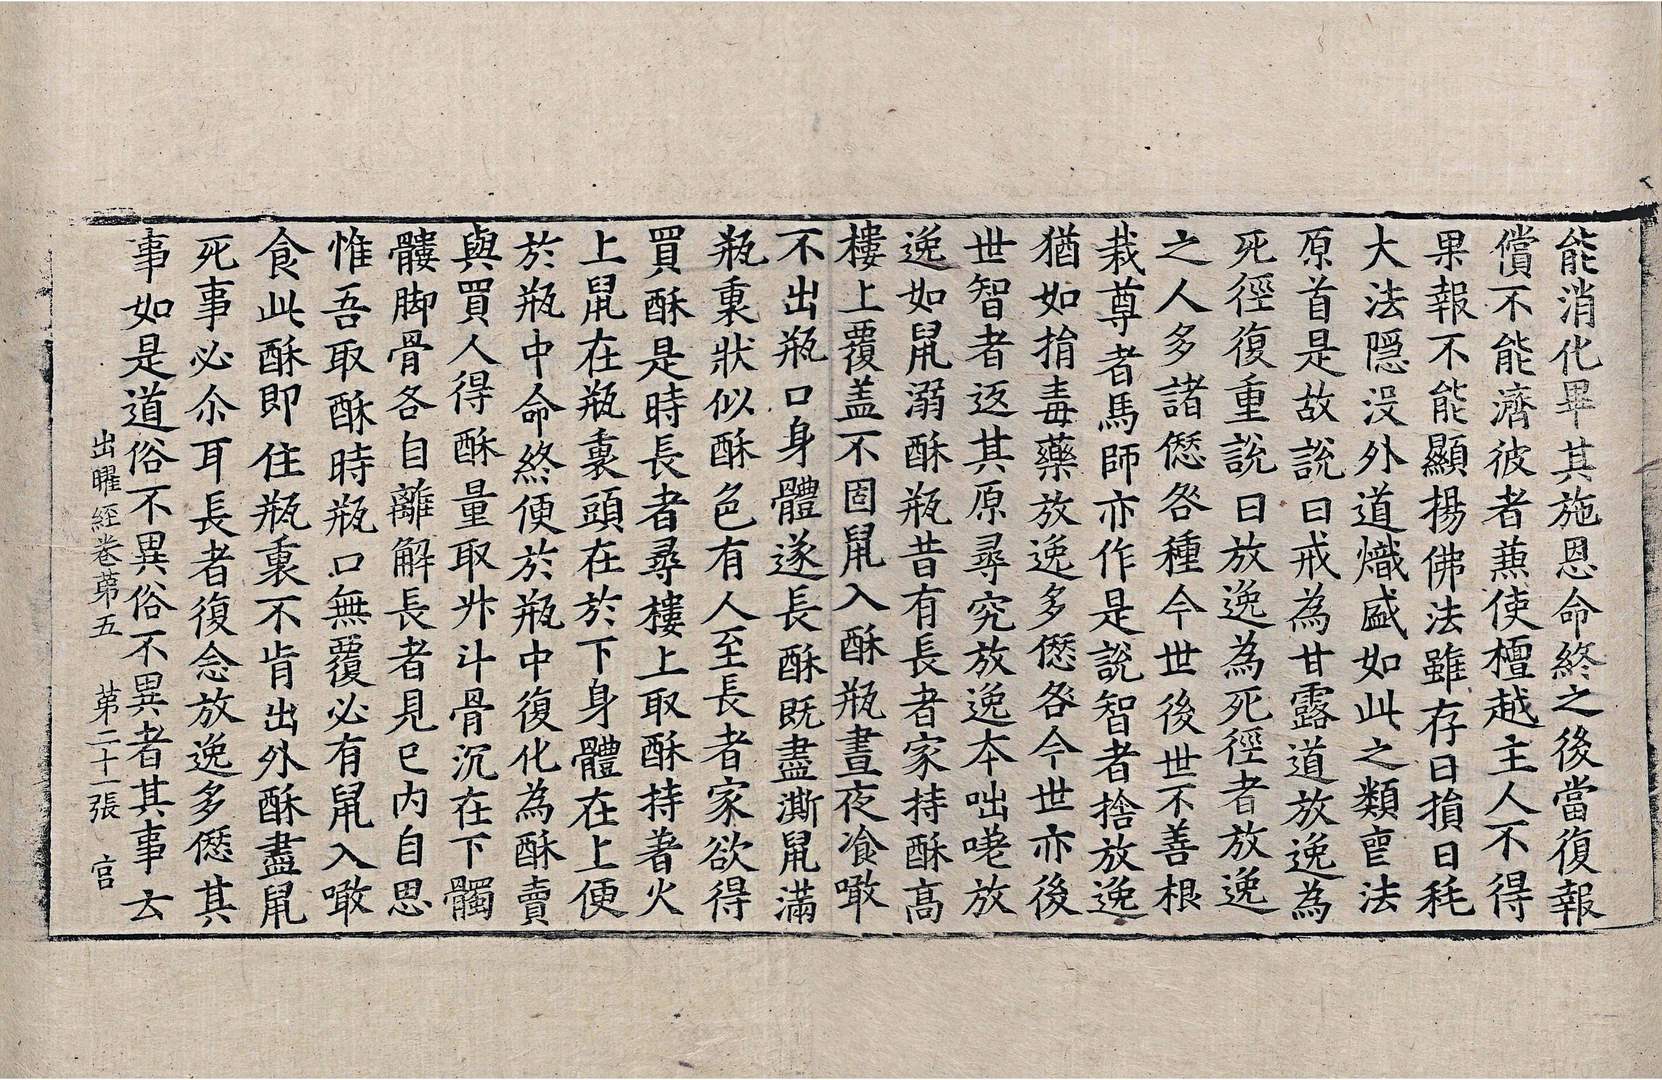 能消化畢其施恩命終之後當復報
償不能濟彼者燕使檀越主人不得
果報不能顯揚佛法雖存日損日秏
大法隱没外道熾盛如此之類亶法
原首是故説曰戒為甘露道放逸為
死徑復重説曰放逸為死徑者放逸
之人多諸僁咎種今世後世不善根
栽尊者馬師亦作是說智者捨放逸
猶如捐毒藥放逸多僁咎今世亦後
世智者返其原尋究放逸本咄嗟放
逸如鼠溺酥瓶昔有長者家持酥高
樓上覆盖不固鼠入酥瓶晝夜飡噉
不出瓶口身體遂長酥既盡澌鼠滿
瓶裏狀似酥色有人至長者家欲得
買酥是時長者尋樓上取酥持著火
上鼠在瓶裏頭在於下身體在上便
於瓶中命終便於瓶中復化為酥賣
與買人得酥量取升斗骨沉在下髑
髏脚骨各自離解長者見已內自思
惟吾取酥時瓶口無覆必有鼠入噉
食此酥即住瓶裏不肯出外酥盡鼠
死事必尒耳長者復念放逸多僁其
事如是道俗不異俗不異者其事云
出曜經卷苐五 苐二十一張 官